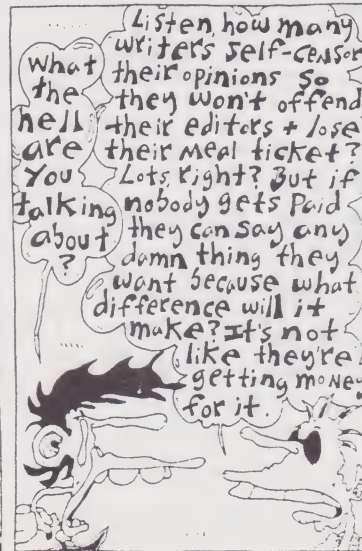 What
the
hell
are
You
talking
about
?
Listen, how many
writers self-censor
their opinions so
they won't offend
their editors + lose
their meal ticket?
Lots, right? But if
nobody gets paid
they can say any
damn thing they
want because what
difference will it
make? It's not
like they're
getting money
for it.